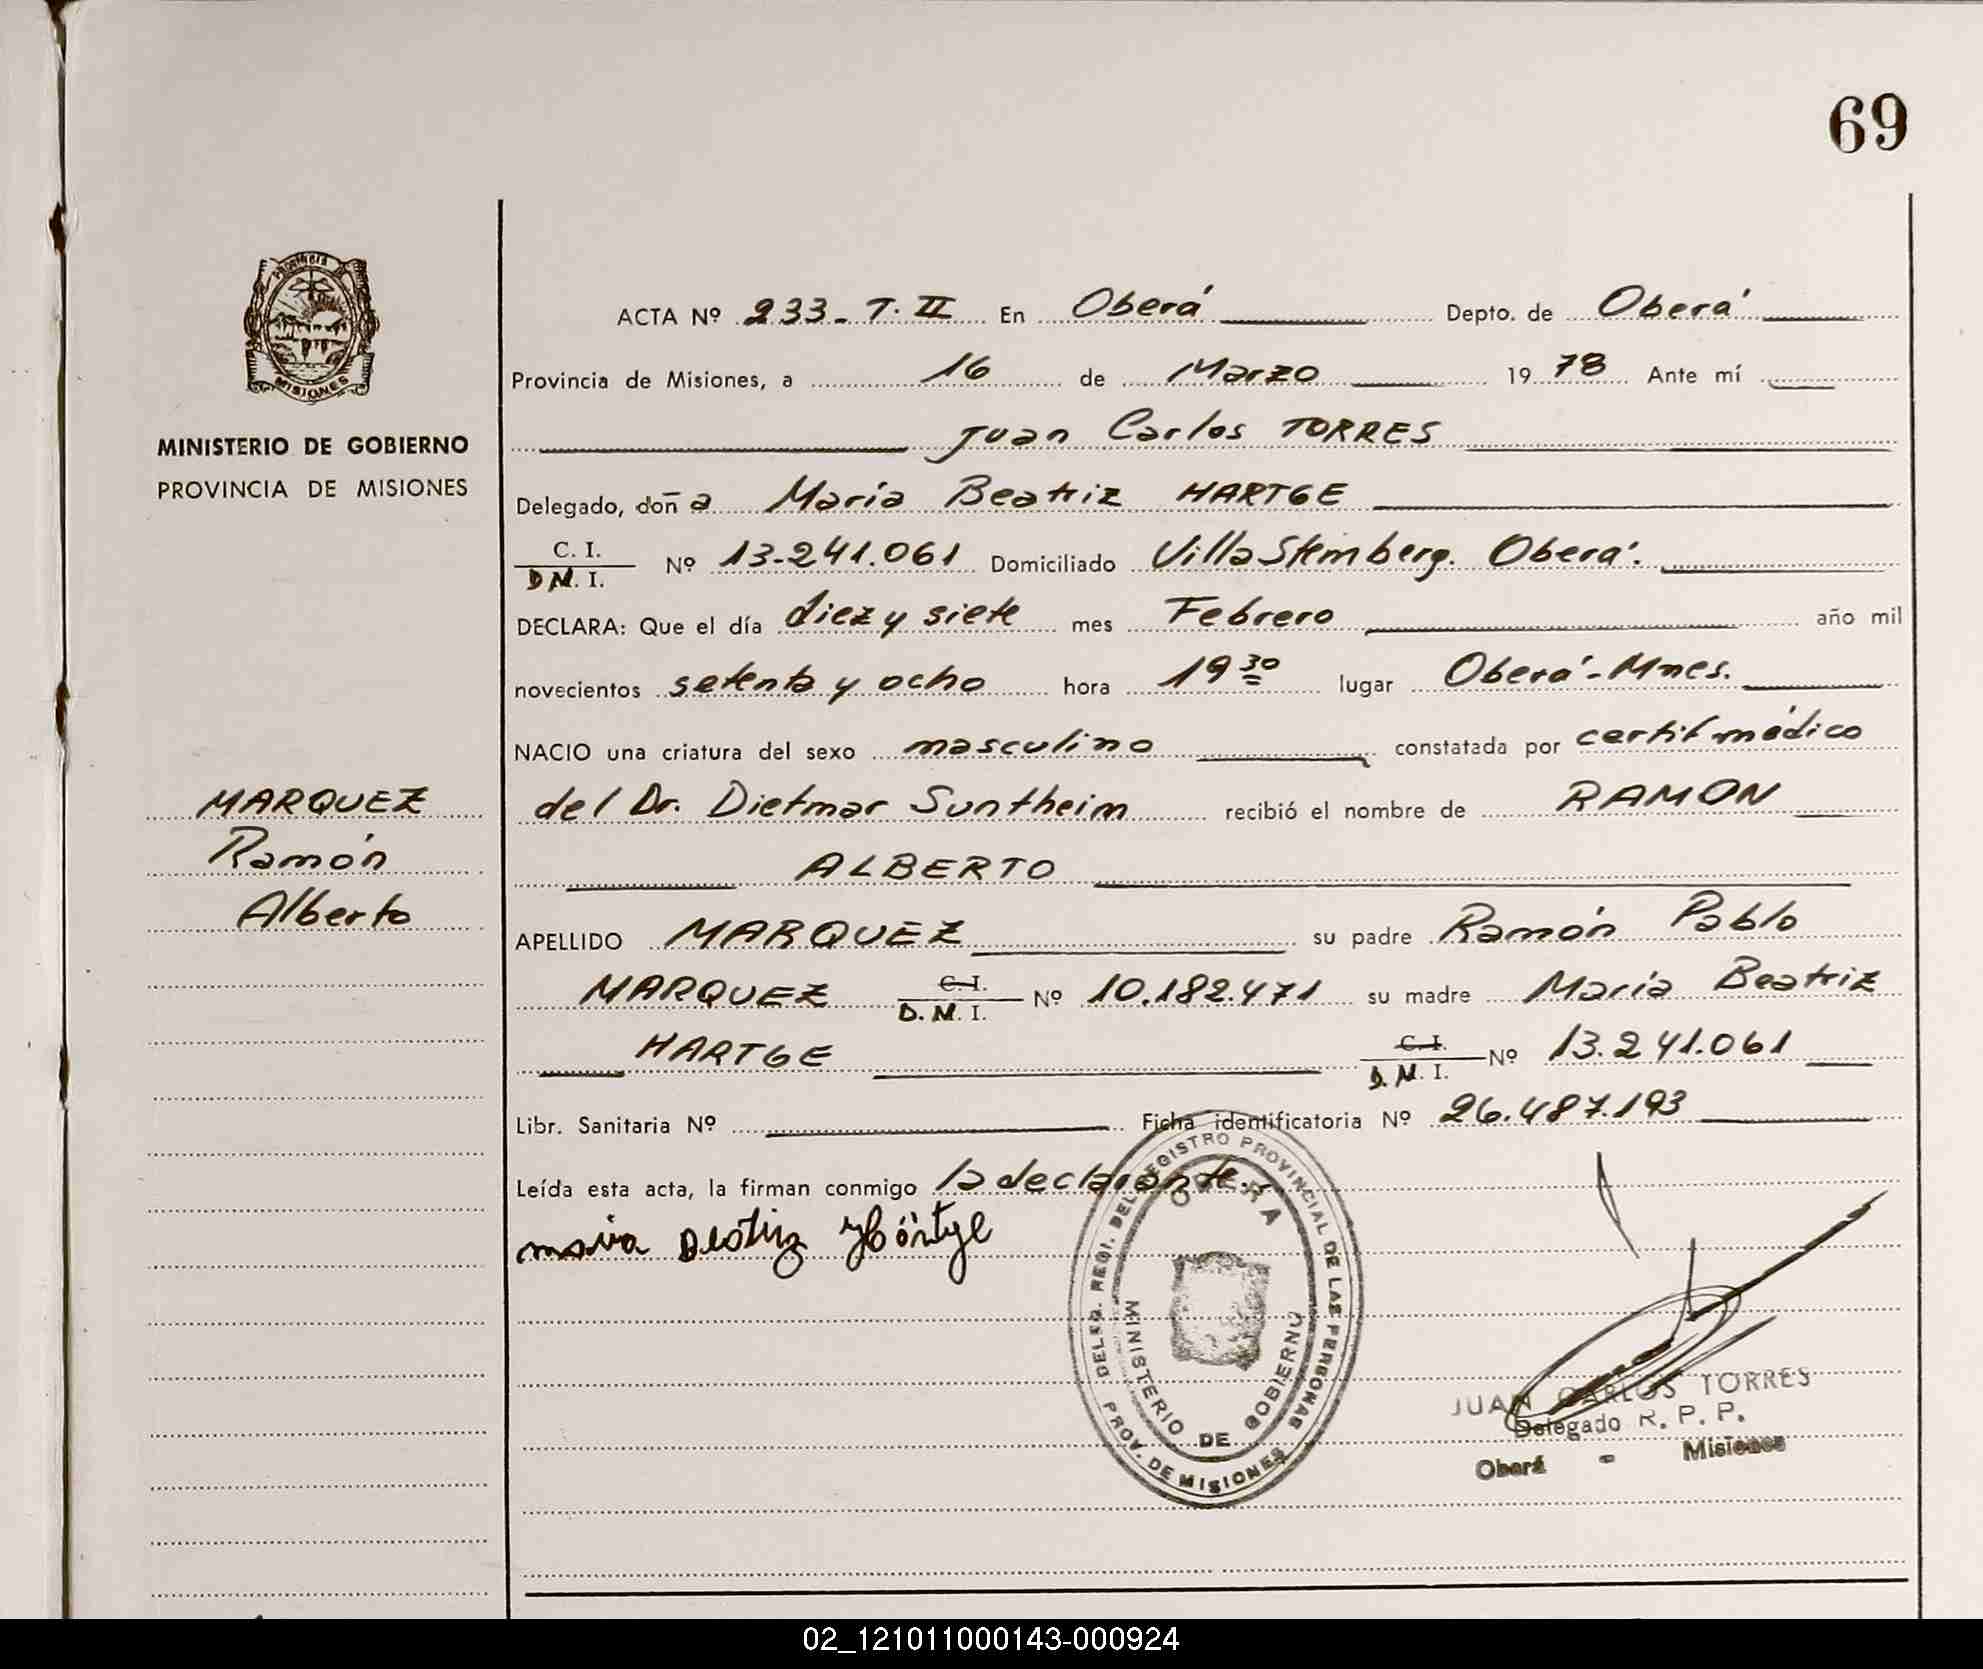 69
ACTA Nº 233 - T. II En Oberá Depto. de Oberá
Provincia de Misiones, a 16 de Marzo 1978 Ante mí
Juan Carlos TORRES
MINISTERIO DE GOBIERNO
PROVINCIA DE MISIONES
Delegado, doña María Beatriz HARTGE
C. I.
D M. I. Nº 13-241.061 Domiciliado Villa Stemberg. Oberá.
DECLARA: Que el día diez y siete mes Febrero año mil
novecientos setenta y ocho hora 19 30 lugar Oberá - Mnes.
NACIO una criatura del sexo masculino constatada por certif médico
MARQUEZ
Ramón
Alberto
del Dr. Dietmar Suntheim recibió el nombre de RAMON
ALBERTO
APELLIDO MARQUEZ su padre Ramón Pablo
MARQUEZ C. I.
D. M. I. Nº 10.182.471 su madre María Beatriz
HARTGE C. I.
D. M. I. Nº 13.241.061
Libr. Sanitaria Nº Ficha identificatoria Nº 26.487.193
Leída esta acta, la firman conmigo la declarante.
maria Beatriz Hártge
DELEG. REGI. DEL REGISTRO PROVINCIAL DE LAS PERSONAS
OBERA
MINISTERIO DE GOBIERNO
PROV. DE MISIONES
JUAN CARLOS TORRES
Delegado R. P. P.
Oberá - Misiones
MISIONES
02_121011000143-000924